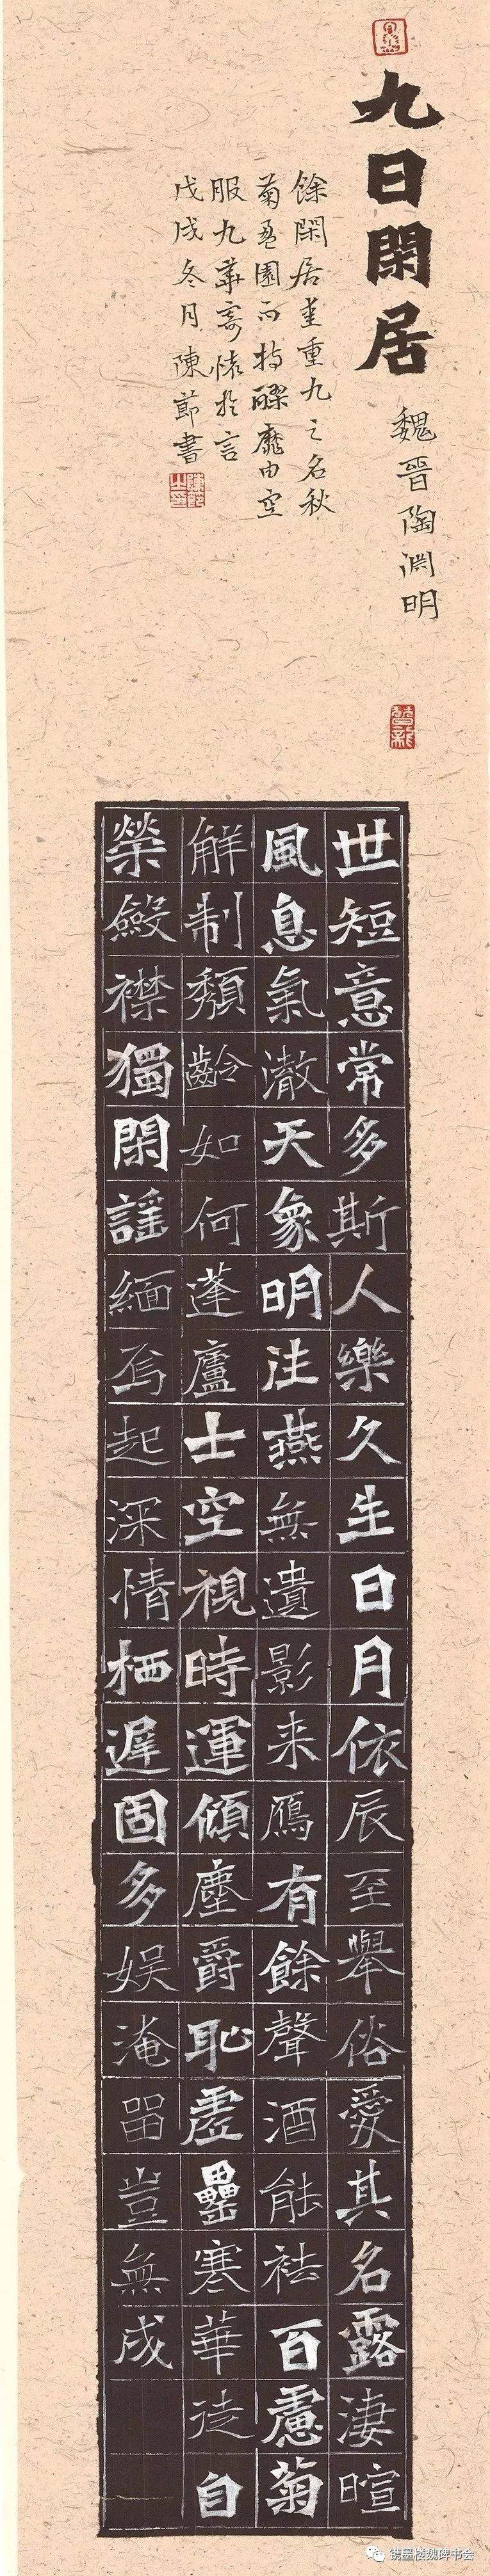 九日閑居 魏晉陶渊明
餘閑居愛重九之名秋
菊盈園而持醪靡由空
服九華寄懷於言
戊戌冬月陳節書
世短意常多斯人樂久生日月依辰至舉俗愛其名露淒暄
風息氣澈天象明往燕無遺影来鴈有餘聲酒能祛百慮菊
解制頹齡如何蓬廬士空視時運傾塵爵恥虛罍寒華徒自
榮斂襟獨閑謠緬焉起深情栖遲固多娱淹留豈無成
墨楼魏碑书会